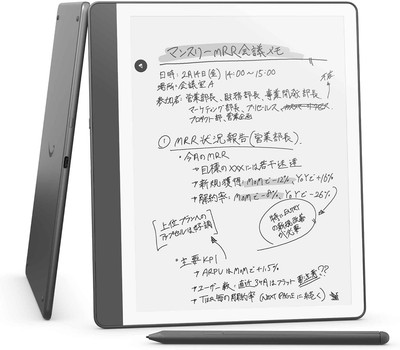 マンスリーMRR会議メモ
日時：2月14日(金) 14:00〜15:00
場所：会議室A
参加者：営業部長、財務部長、事業開発部長、
マーケティング部長、プリセールス、
欠席
プロダクト部、営業企画
① MRR状況報告(営業部長)
・今月のMRR
→目標のXXXには若干未達
→新規獲得：MoMで-12%、YoYで+16%
→解約率：MoMで-8%、YoYで-26%
上位プランへの
アップセルは好調
特にENTRY
の新規改善
が火事
・主要KPI
→ARPUはMoMで+1.5%
→ユーザー数：直近3ヶ月はフラット 要注意??
→TIER毎の解約率(NEXT PAGEに続く)